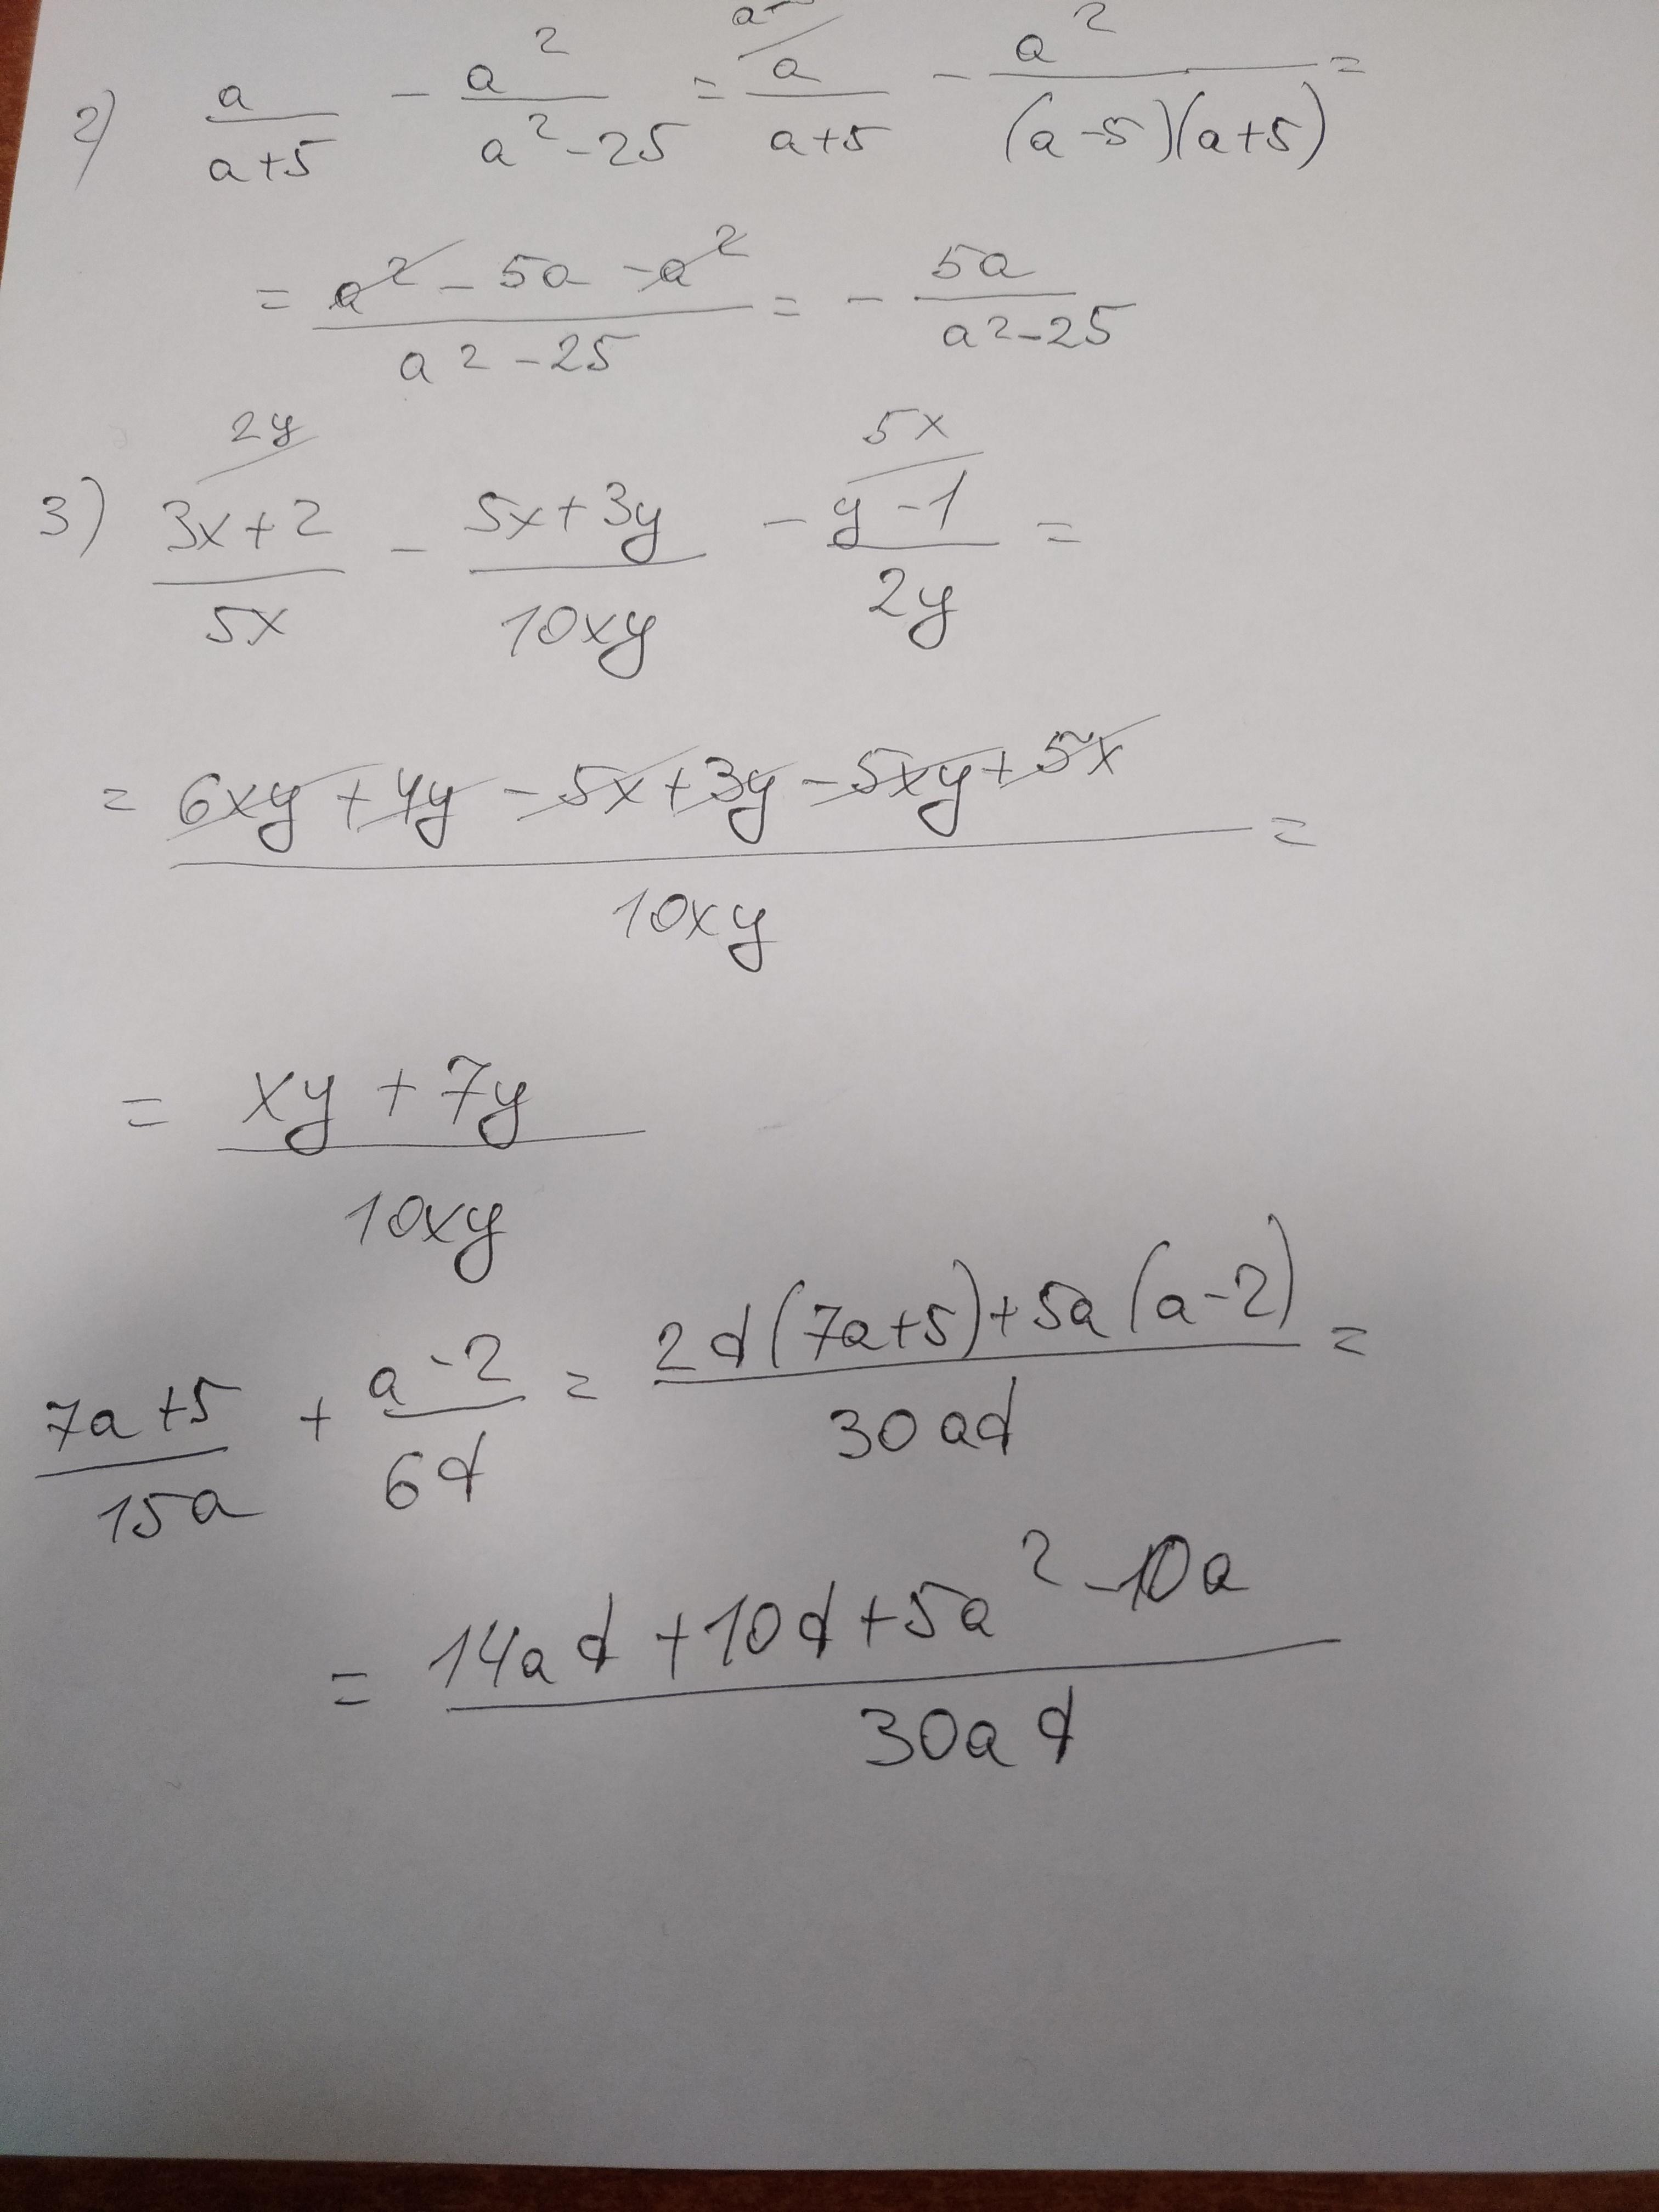 2) a/(a+5) - a²/(a²-25) = a/(a+5) - a²/((a-5)(a+5)) =
= (a² - 5a - a²)/(a²-25) = - 5a/(a²-25)
2y 5x
3) (3x+2)/5x - (5x+3y)/10xy - (y-1)/2y =
= (6xy + 4y - 5x + 3y - 5xy + 5x)/10xy =
= (xy + 7y)/10xy
(7a+5)/15a + (a-2)/6d = (2d(7a+5)+5a(a-2))/30ad =
= (14ad + 10d + 5a² - 10a)/30ad